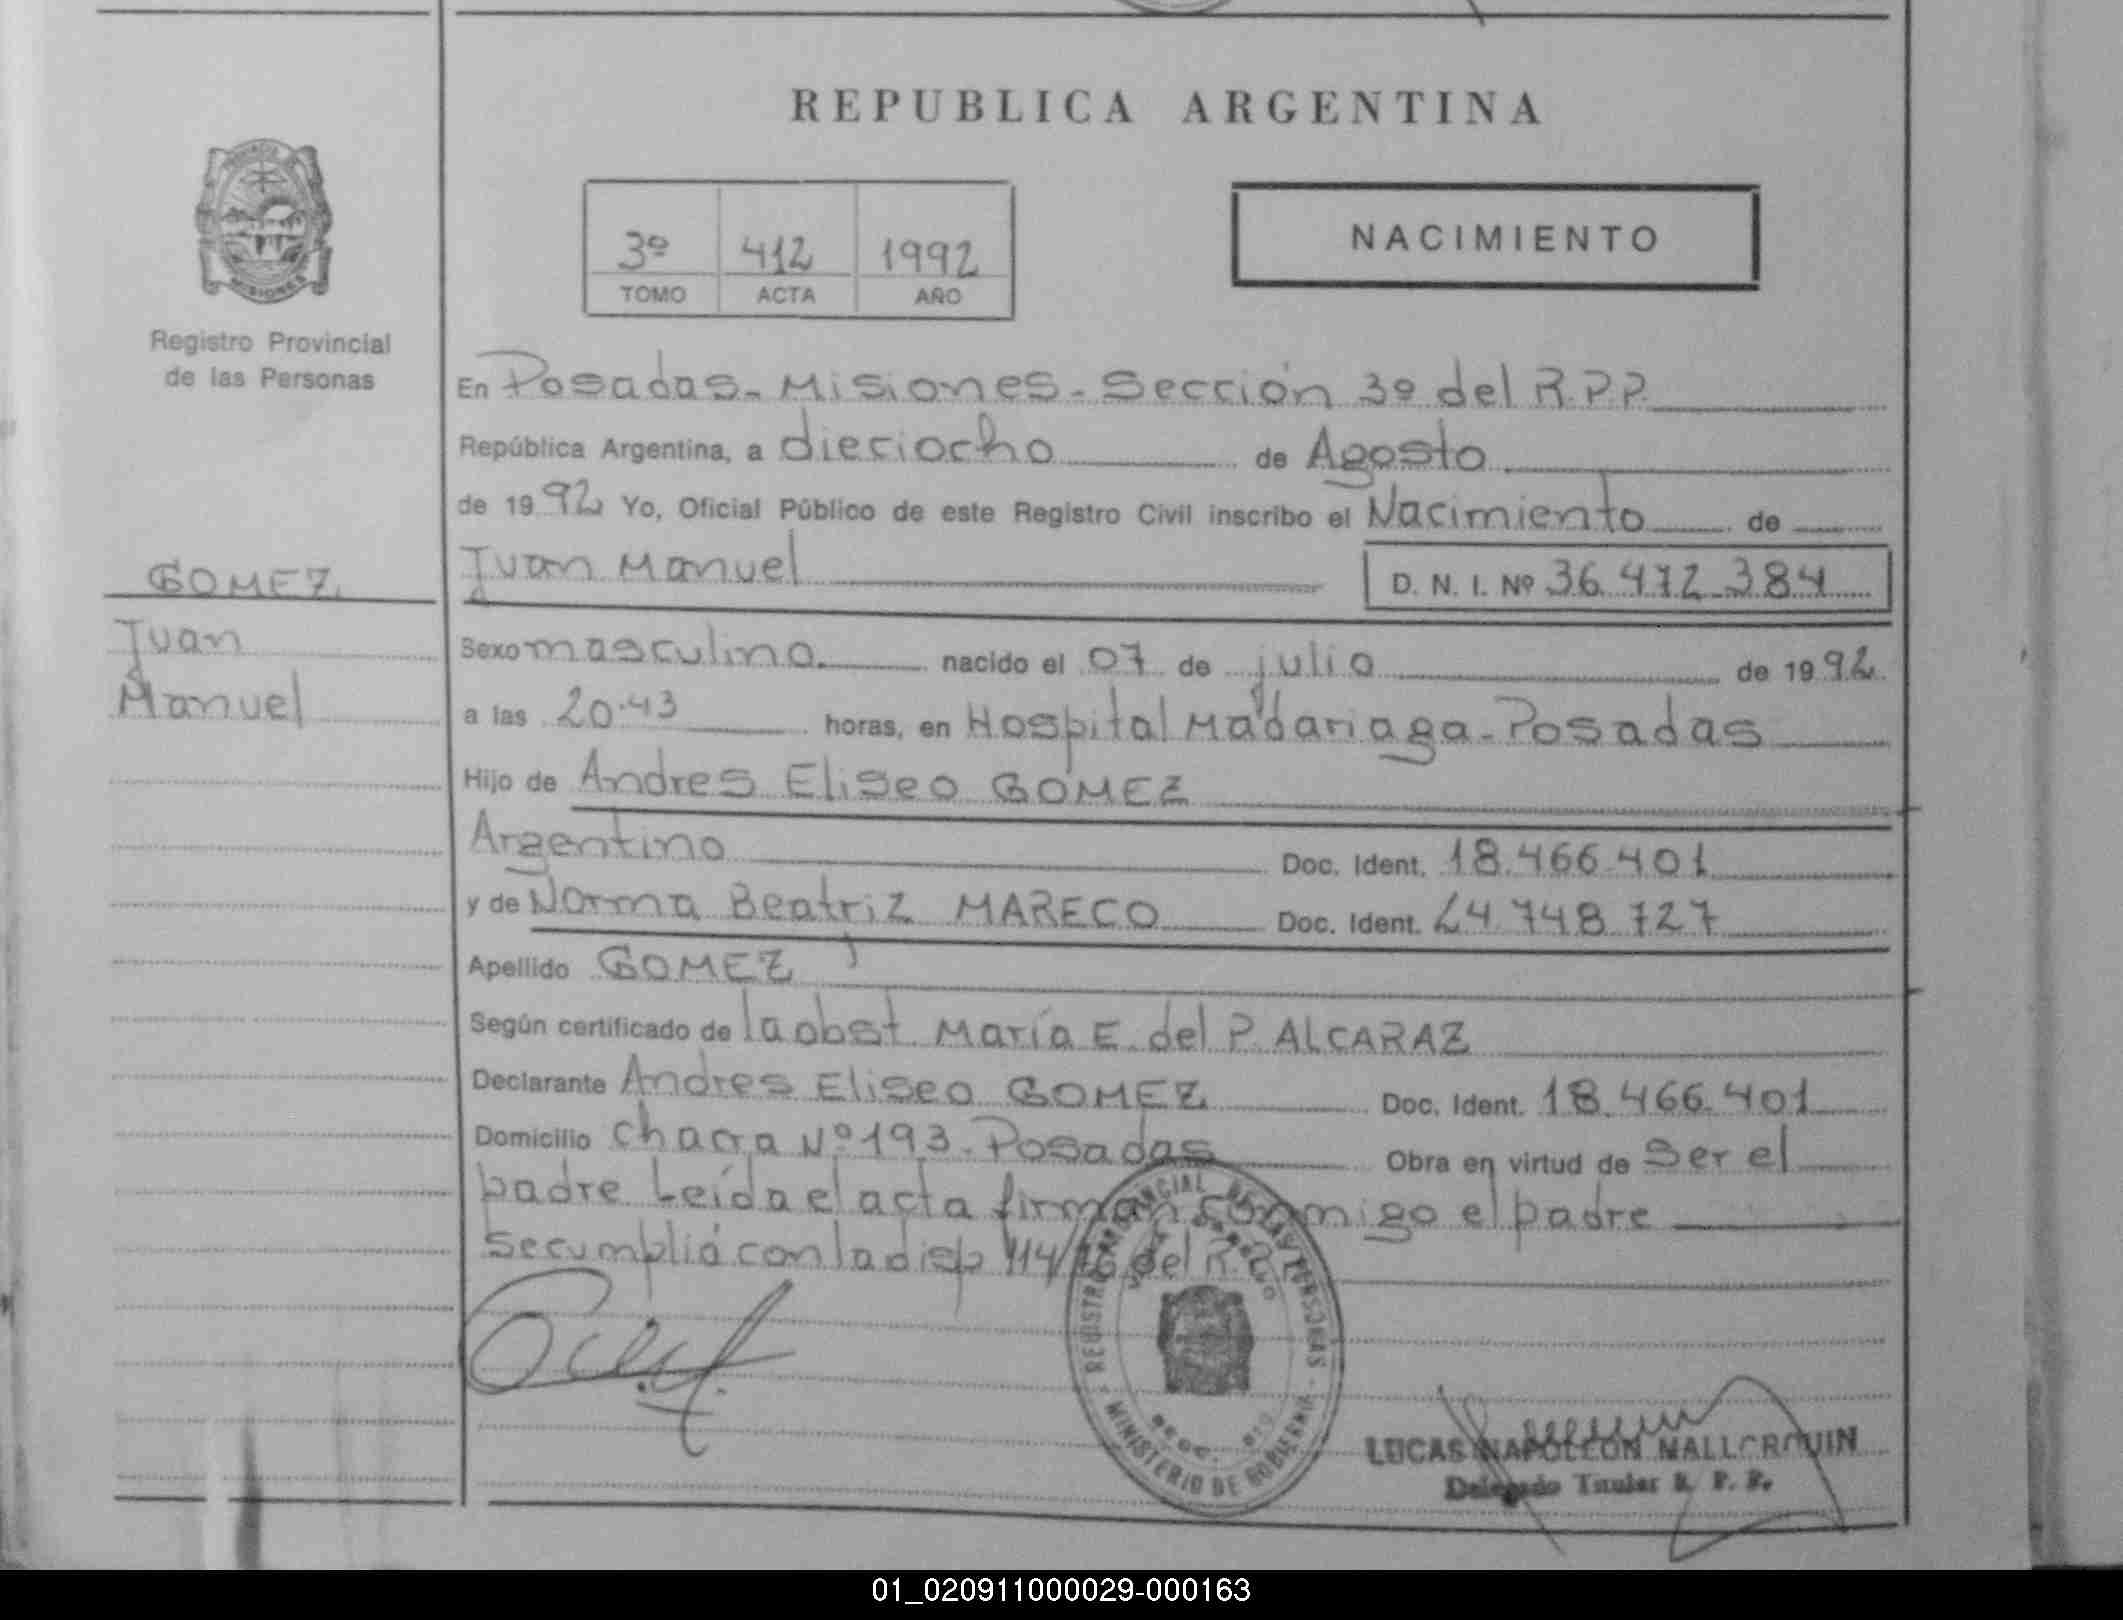 REPUBLICA ARGENTINA
PROVINCIA DE
MISIONES
Registro Provincial
de las Personas
3º 412 1992
TOMO ACTA AÑO
NACIMIENTO
En Posadas - Misiones - Sección 3º del R.P.P.
República Argentina, a dieciocho de Agosto
de 1992 Yo, Oficial Público de este Registro Civil inscribo el Nacimiento de
GOMEZ
Juan
Manuel
Juan Manuel D. N. I. Nº 36.472.384
Sexo masculino. nacido el 07 de julio de 1992
a las 20.43 horas, en Hospital Madariaga - Posadas
Hijo de Andres Eliseo GOMEZ
Argentino Doc. Ident. 18.466.401
y de Norma Beatriz MARECO Doc. Ident. 24.748.727
Apellido GOMEZ
Según certificado de la obst. María E. del P. ALCARAZ
Declarante Andres Eliseo GOMEZ Doc. Ident. 18.466.401
Domicilio Chacra Nº 193 - Posadas Obra en virtud de ser el
padre Leída el acta firman conmigo el padre
se cumplió con la disp del R.P.P.
REGISTRO PROVINCIAL DE LAS PERSONAS
MINISTERIO DE GOBIERNO
LUCAS NAPOLEON MALLORQUIN
Delegado Titular R. P. P.
01_020911000029-000163